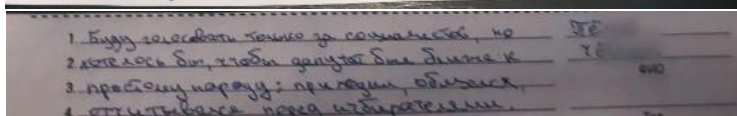 1. Буду голосовать только за социалистов, но
2. хотелось бы, чтобы депутат был ближе к
3. простому народу: приходил, общался,
4. отчитывался перед избирателями.
Пё
Чё
ФИО